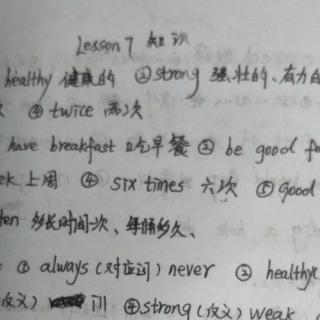 Lesson 7 知识
healthy 健康的 ②strong 强壮的、有力的
④ twice 两次
have breakfast 吃早餐 ② be good fo
ek 上周 ④ six times 六次 ⑤ good
ten 多长时间一次、每隔多久、
① always (对应词) never ② healthy(
反义) ill ④strong (反义) weak